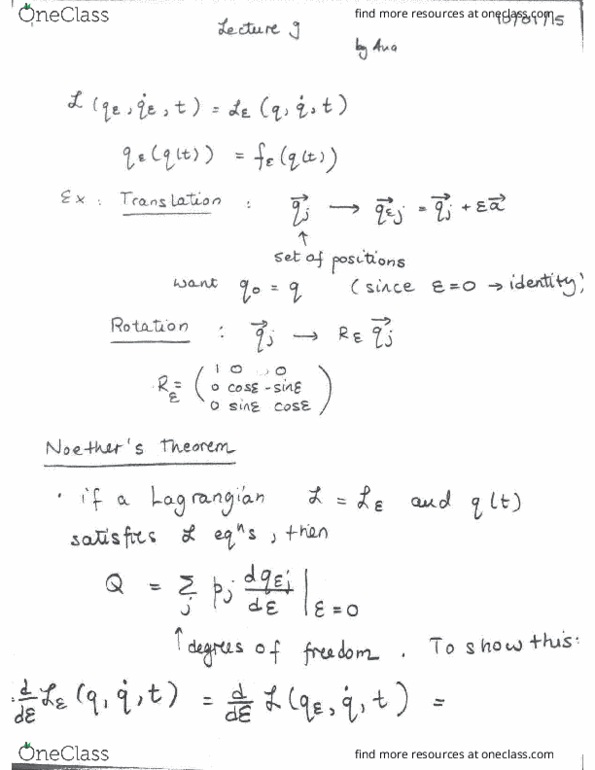 OneClass
find more resources at oneclass.com
Lecture 9
by Ana
ℒ (qε, q̇ε, t) = ℒε (q, q̇, t)
qε (q(t)) = fε (q(t))
Ex : Translation : q⃗j → q⃗εj = q⃗j + εa⃗
↑
set of positions
want q0 = q (since ε=0 → identity)
Rotation : q⃗j → Rε q⃗j
Rε = ( 1 0 0
0 cosε -sinε
0 sinε cosε )
Noether's Theorem
· if a Lagrangian ℒ = ℒε and q(t)
satisfies ℒ eqⁿs, then
Q = Σj pj dqεj/dε |ε=0
↑ degrees of freedom . To show this:
d/dε ℒε (q, q̇, t) = d/dε ℒ (qε, q̇, t) =
OneClass
find more resources at oneclass.com